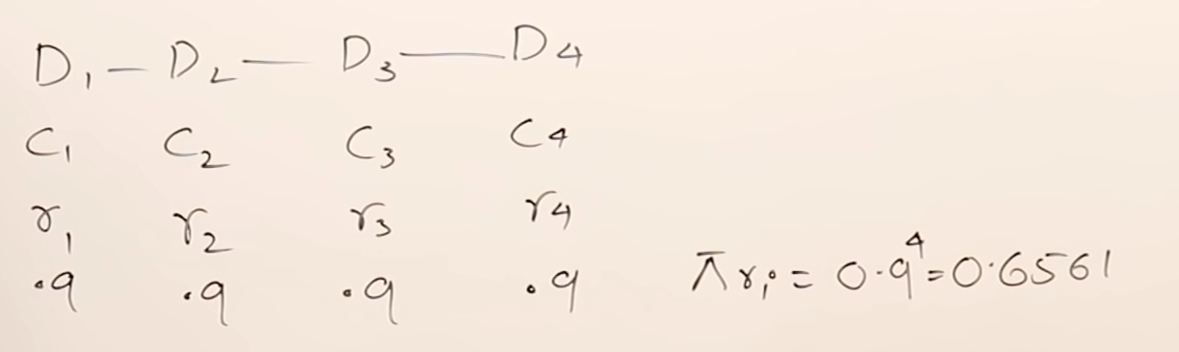 D₁ — D₂ — D₃ — D₄
C₁ C₂ C₃ C₄
r₁ r₂ r₃ r₄
.9 .9 .9 .9 πrᵢ = 0.9⁴ = 0.6561